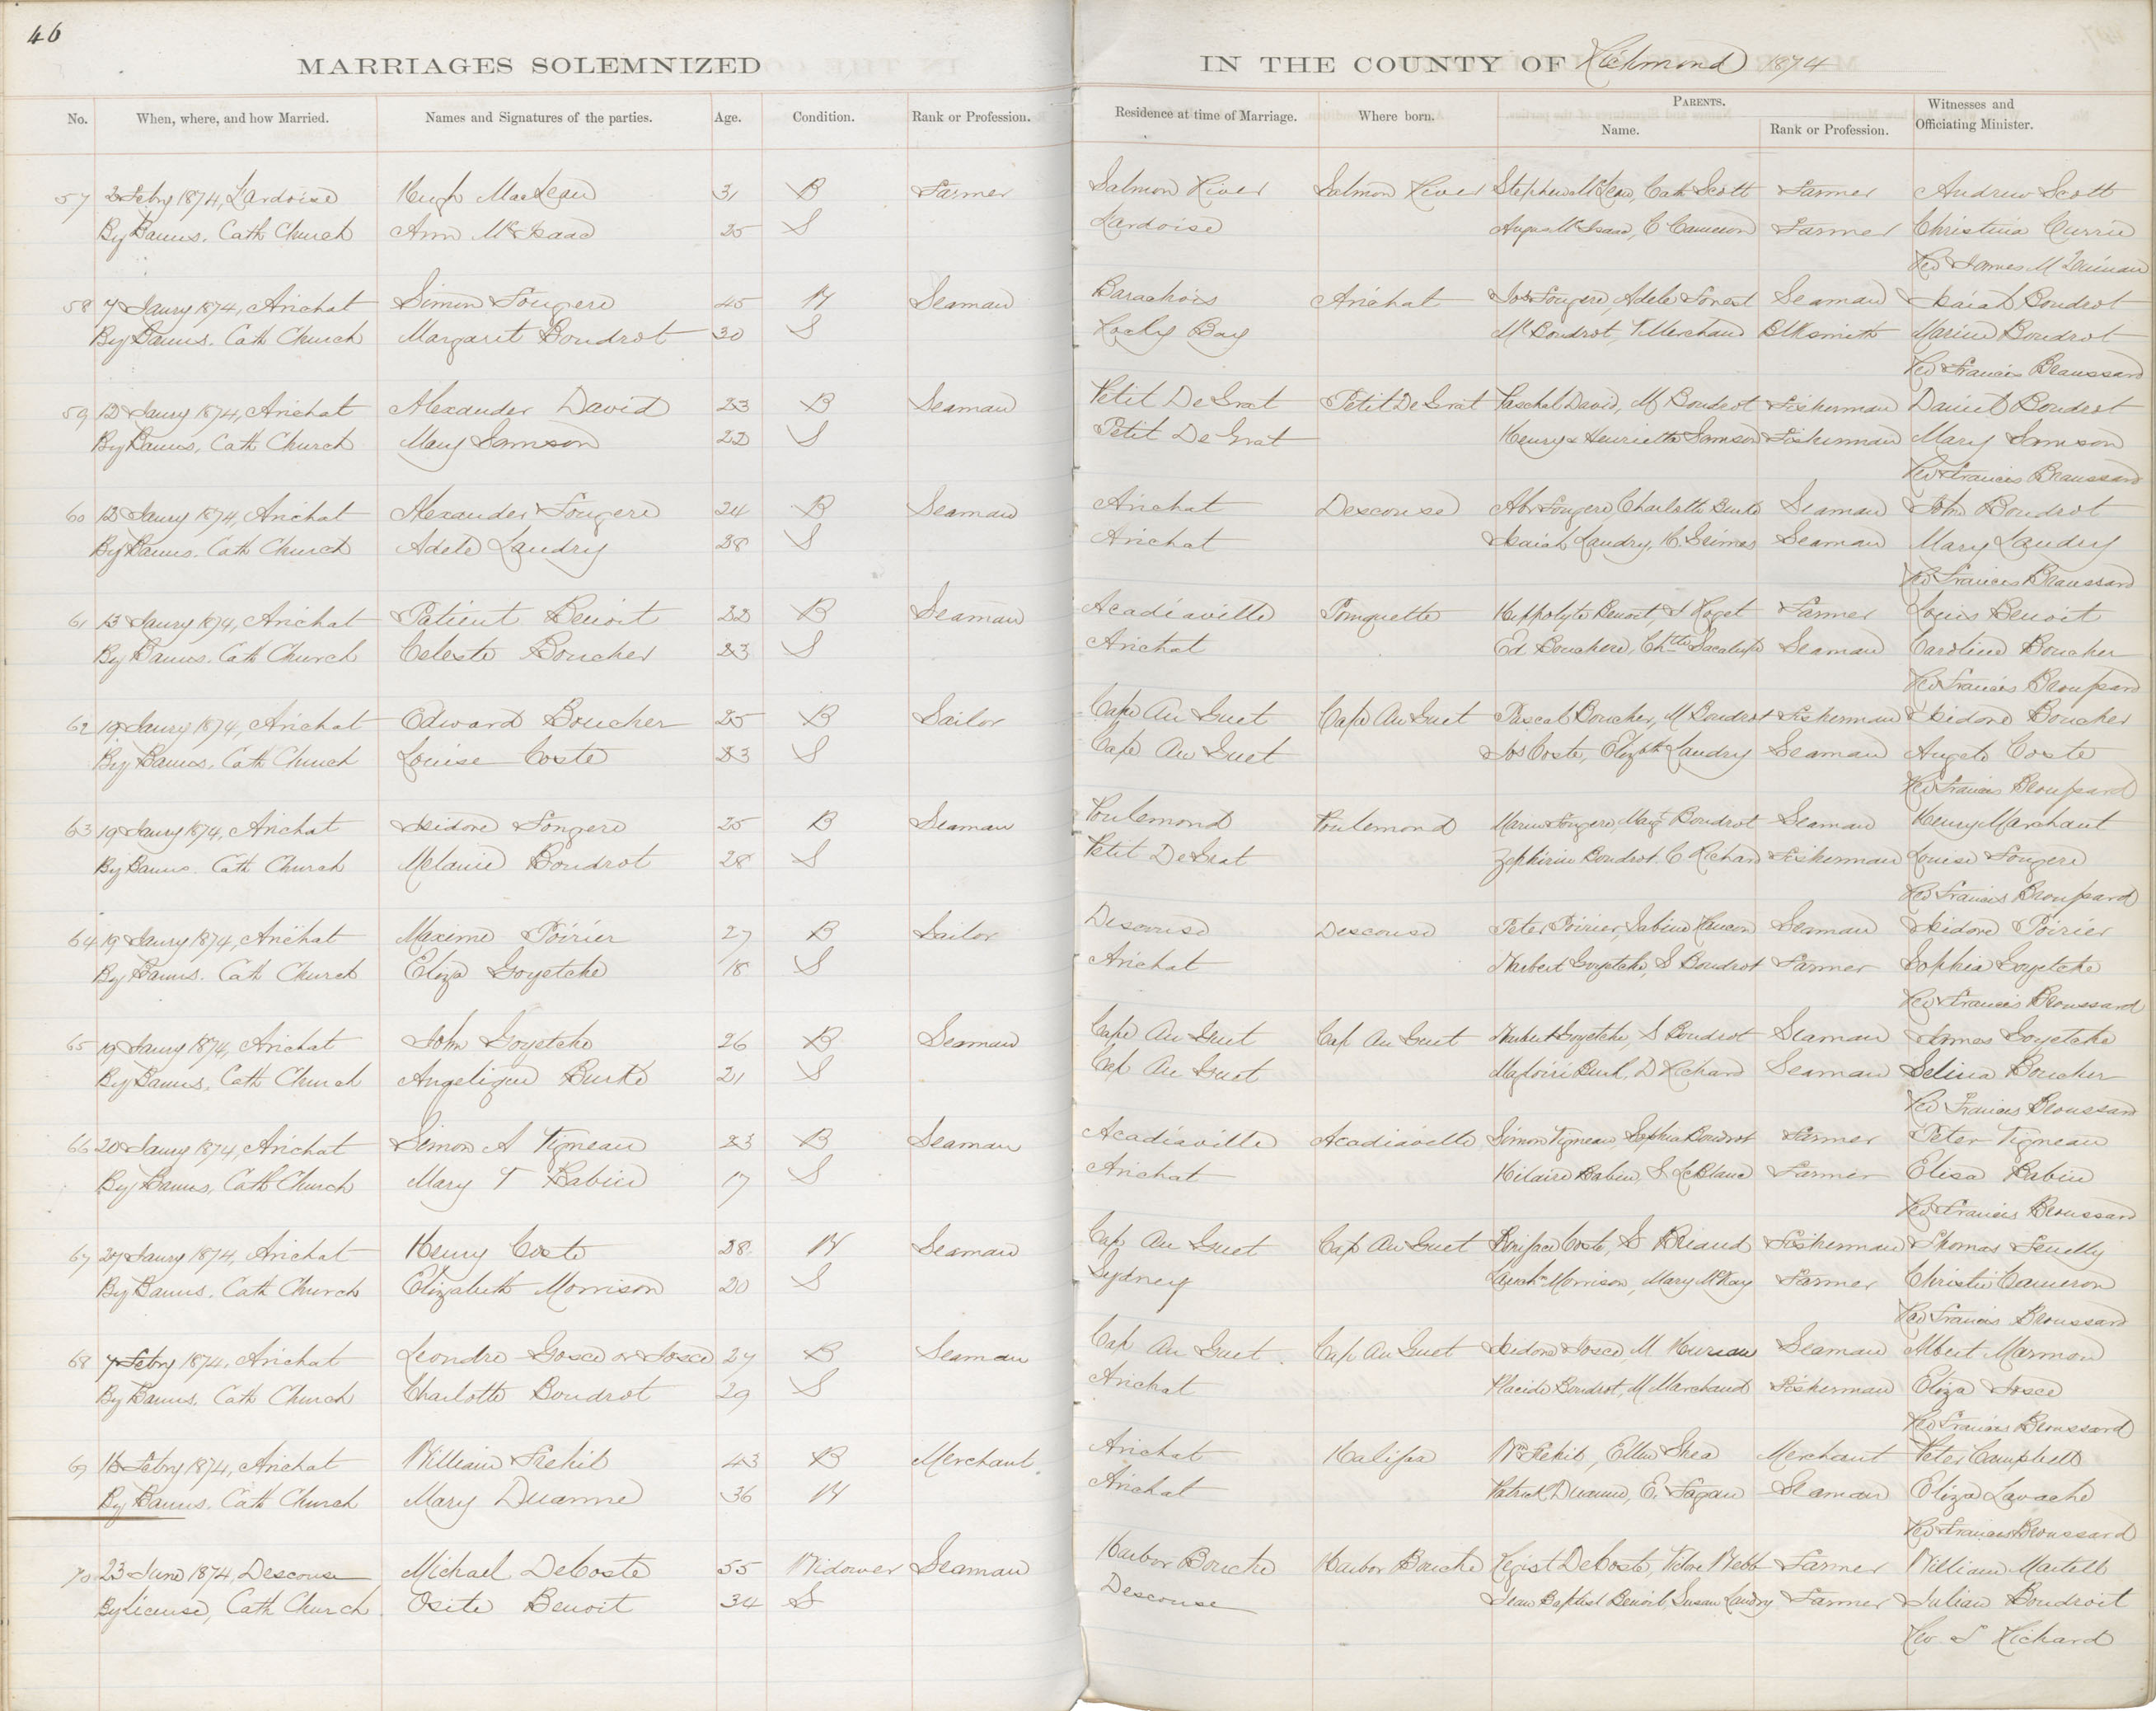 46
MARRIAGES SOLEMNIZED IN THE COUNTY OF Richmond 1874
No. When, where, and how Married. Names and Signatures of the parties. Age. Condition. Rank or Profession. Residence at time of Marriage. Where born. PARENTS. Name. Rank or Profession. Witnesses and Officiating Minister.
57 2 Febry 1874, Lardoise Hugh MacLean 31 B Farmer Salmon River Salmon River Stephen McLean, Cath Scott Farmer Andrew Scott
By Banns. Cath Church Ann McIsaac 25 S Lardoise Angus McIsaac, C Cameron Farmer Christina Currie
Rev James M
58 7 Jaury 1874, Arichat Simon Fougere 45 W Seaman Barachois Arichat Jos Fougere, Adele Forest Seaman Isaiah Boudrot
By Banns. Cath Church Margaret Boudrot 30 S Rocky Bay Mc Boudrot, V Merchand Blksmith Marine Boudrot
Rev Francis Beaussard
59 12 Jaury 1874, Arichat Alexander David 23 B Seaman Petit De Grat Petit De Grat Paschal David, M Boudrot Fisherman Daniel Boudrot
By Banns, Cath Church Mary Samson 22 S Petit De Grat Henry & Henriette Samson Fisherman Mary Samson
Rev Francis Beaussard
60 12 Jaury 1874, Arichat Alexander Fougere 24 B Seaman Arichat Descouse Abr Fougere, Charlotte Burke Seaman John Boudrot
By Banns. Cath Church Adele Landry 28 S Arichat Isaiah Landry, H. Grimes Seaman Mary Landry
Rev Francis Beaussard
61 13 Jaury 1874, Arichat Patient Benoit 22 B Seaman Acadiaville Pomquette Hyppolyte Benoit, S Roget Farmer Louis Benoit
By Banns. Cath Church Celeste Boucher 23 S Arichat Ed Bouchere, Chtte Seaman Caroline Boucher
Rev Francis Broussard
62 19 Jaury 1874, Arichat Edward Boucher 25 B Sailor Cape Au Guet Cape Au Guet Pascal Boucher, M Boudrot Fisherman Isidore Boucher
By Banns, Cath Church Louise Coste 23 S Cape Au Guet Jos Coste, Elizbth Landry Seaman Augste Coste
Rev Francis Broussard
63 19 Jaury 1874, Arichat Isidore Fougere 25 B Seaman Poulemond Poulemond Marin Fougere, Magt Boudrot Seaman Henry Marchant
By Banns. Cath Church Melanie Boudrot 28 S Petit De Grat Zephirin Boudrot. C Richard Fisherman Louise Fougere
Rev Francis Broussard
64 19 Jaury 1874, Arichat Maxime Poirier 27 B Sailor Descouse Descouse Peter Poirier, Sabine Seaman Isidore Poirier
By Banns. Cath Church Eliza Goyetche 18 S Arichat Hubert Goyetche, S Boudrot Farmer Sophia Goyetche
Rev Francis Broussard
65 19 Jaury 1874, Arichat John Goyetche 26 B Seaman Cape Au Guet Cap Au Guet Hubert Goyetche, S Boudrot Seaman James Goyetche
By Banns, Cath Church Angelique Burke 21 S Cap Au Guet Burk, D Richard Seaman Selina Boucher
Rev Francis Broussard
66 20 Jaury 1874, Arichat Simon A Tigneau 23 B Seaman Acadiaville Acadiaville Simon Tigneau, Sophia Boudrot Farmer Peter Tigneau
By Banns, Cath Church Mary T Babin 17 S Arichat Hilaire Babin, S LeBlanc Farmer Elisa Babin
Rev Francis Broussard
67 27 Jaury 1874, Arichat Henry Coste 28 W Seaman Cap Au Guet Cap Au Guet Boniface Coste, S Briand Fisherman Thomas
By Banns. Cath Church Elizabeth Morrison 20 S Sydney Lauchn Morrison, Mary McKay Farmer Christie Cameron
Rev Francis Broussard
68 7 Febry 1874, Arichat Leondre Gosce or Josce 27 B Seaman Cap Au Guet Cap Au Guet Isidore Josce, M Seaman Albert Marmon
By Banns. Cath Church Charlotte Boudrot 29 S Arichat Placide Boudrot, M Marchand Fisherman Eliza Josce
Rev Francis Broussard
69 16 Febry 1874, Arichat William 43 B Merchant. Arichat Halifax Ellen Shea Merchant Peter Campbell
By Banns. Cath Church Mary Duanne 36 W Arichat Patrick Duanne, E. Fagan Seaman Eliza Lavache
Rev Francis Broussard
70 23 June 1874, Descouse Michael DeCoste 55 Widower Seaman Harbor Bouche Harbor Bouche Regist DeCoste, Webb Farmer William Martell
By License, Cath Church. Osite Benoit 34 S Descouse Jean Baptist Benoit, Susan Landry Farmer Julian Boudroit
Rev. S Richard